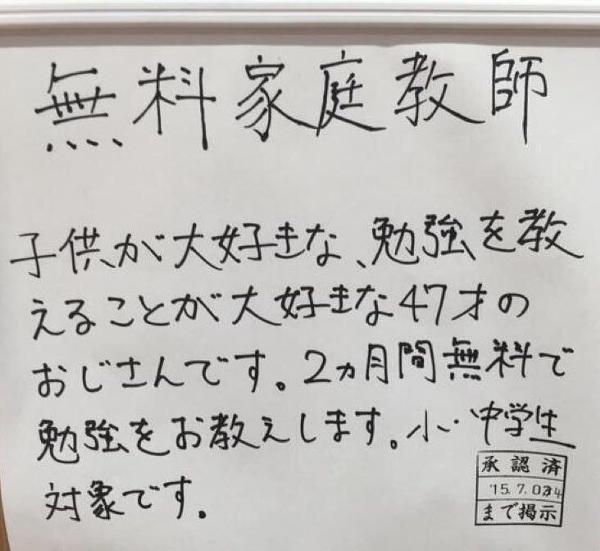 無料家庭教師
子供が大好きな、勉強を教
えることが大好きな47才の
おじさんです。2ヵ月間無料で
勉強をお教えします。小・中学生
対象です。
承認済
まで掲示